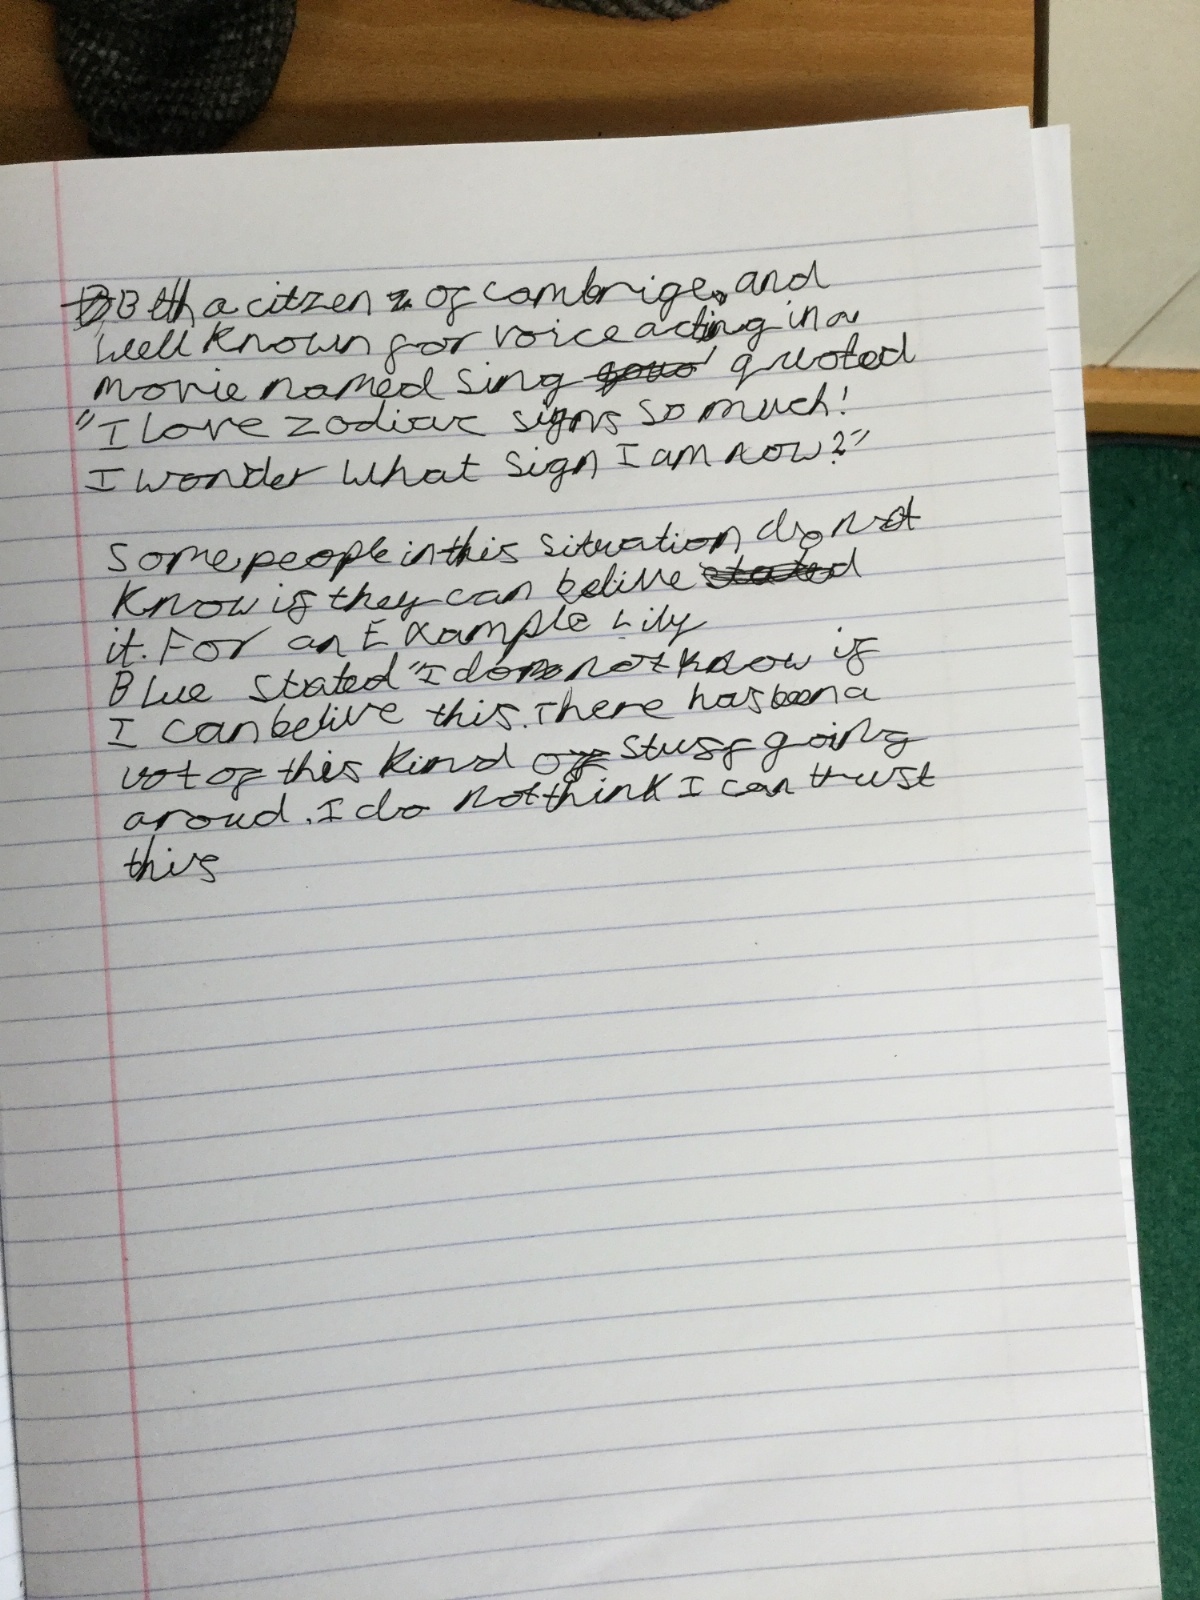 Beth a citzen of cambrige, and
well known for voice acting in a
movie named Sing quoted
"I love zodiac signs so much!
I wonder what sign I am now?"
Some people in this situation do not
know if they can belive
it. For an Example Lily
Blue stated "I do not know if
I can belive this. There has been a
lot of this kind of stuff going
aroud. I do not think I can trust
this